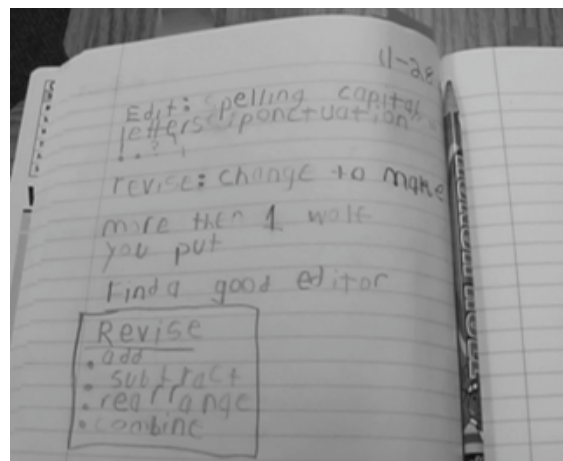 11-28
Edit: spelling capital
letters ponctuation
. . ? !
revise: change to make
more then 1
you put
Find a good editor
Revise
. add
. subtract
. rearrange
. combine